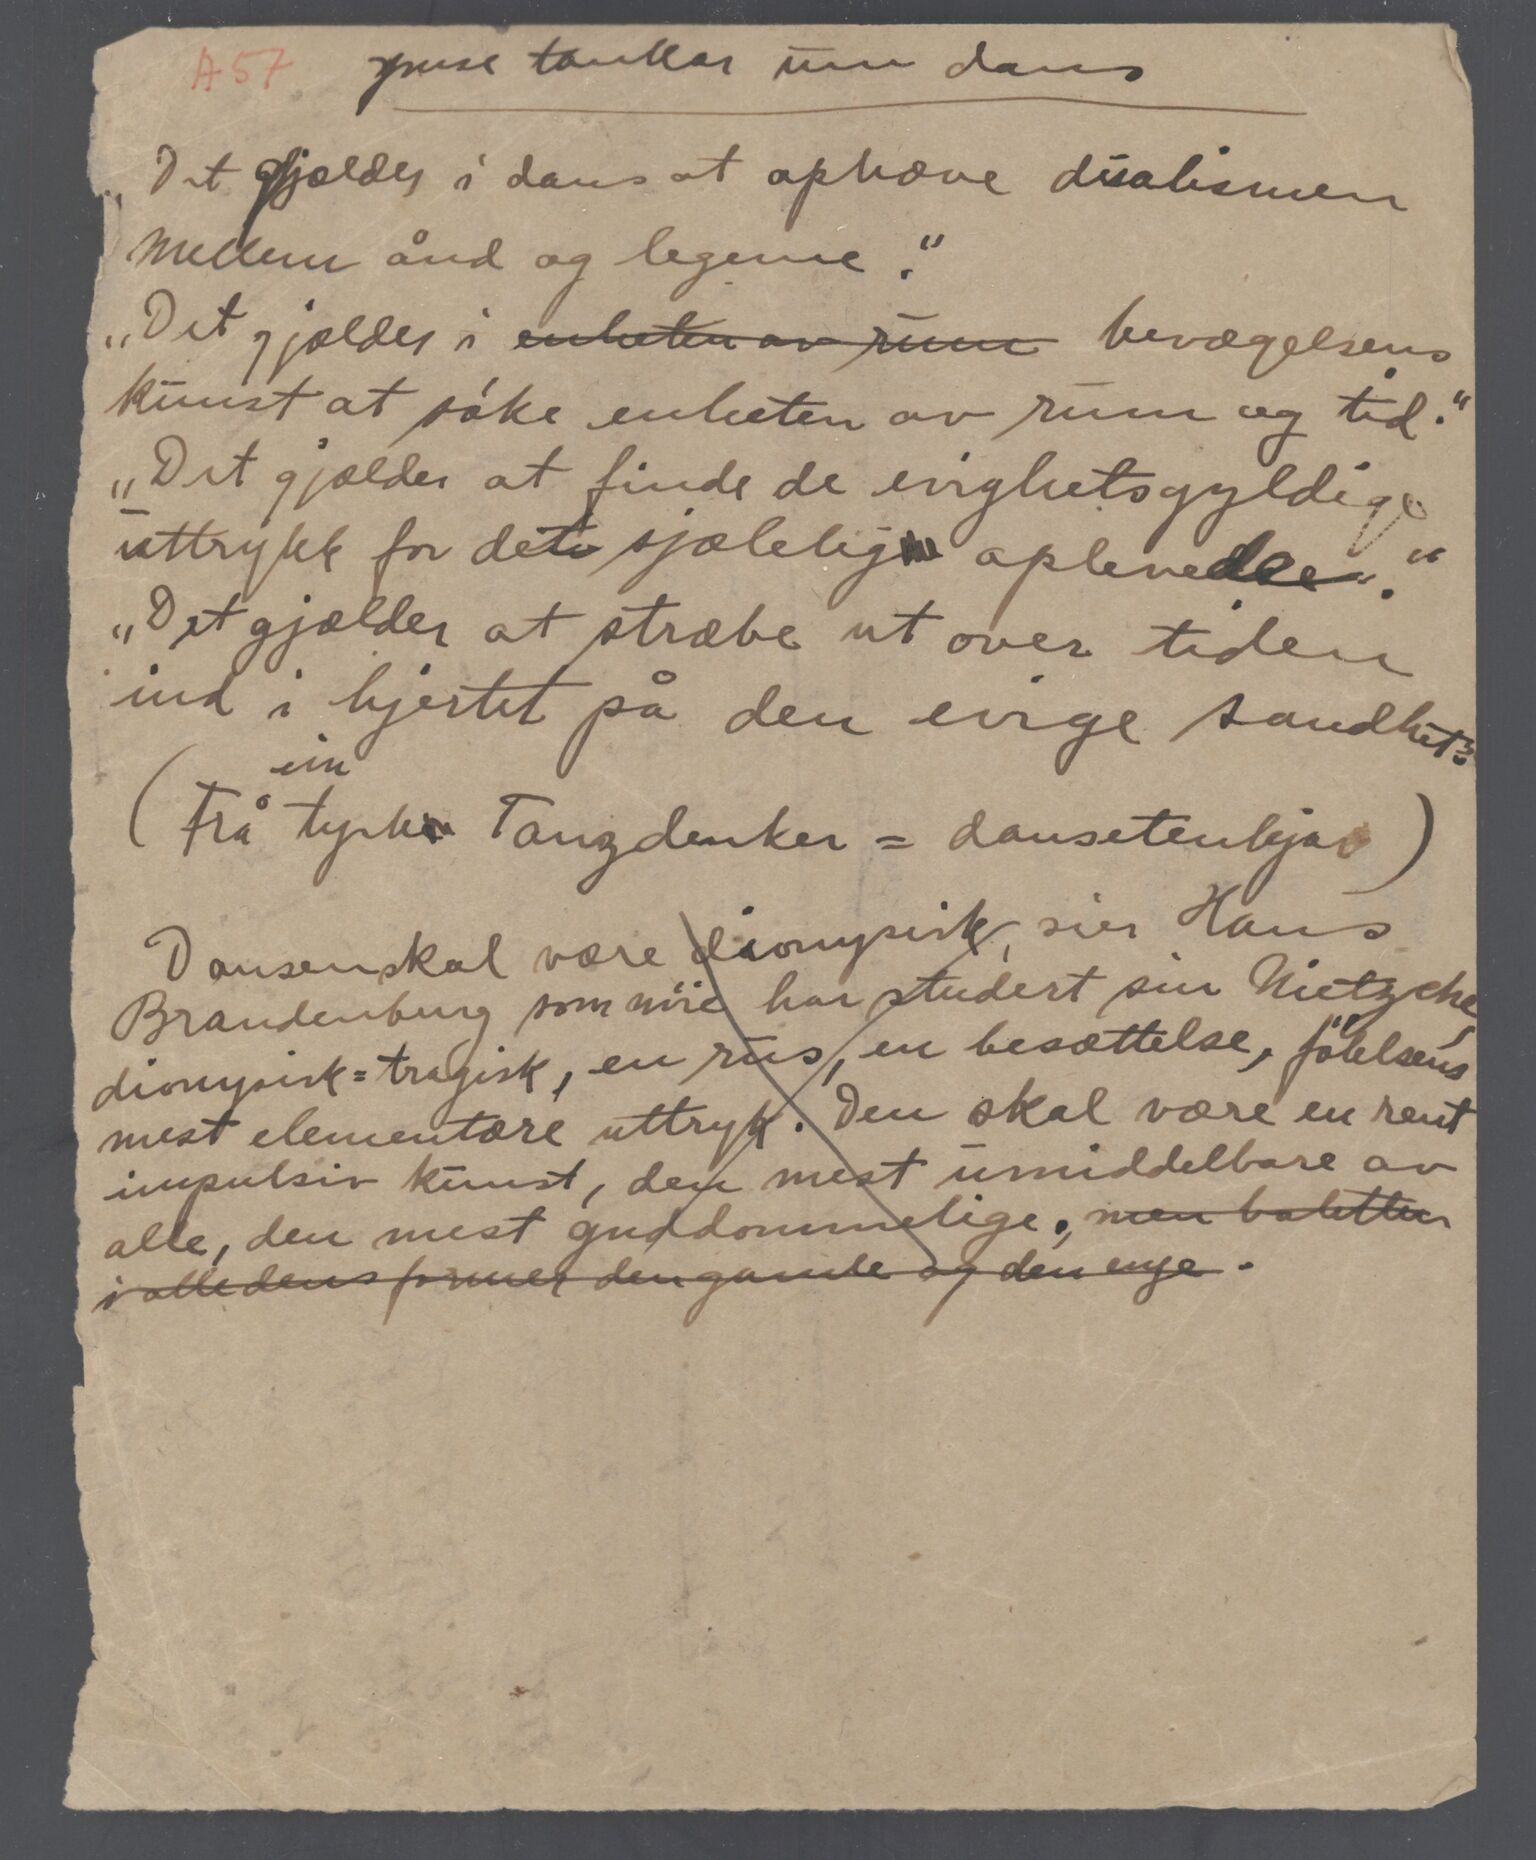 A 57 ymse tankar um dans
„Det gjælder i dans at ophæve dualismen
mellem ånd og legeme."
„Det gjælder i enheten av rum bevægelsens
kunst at søke enheten av rum og tid."
„Det gjælder at finde de evighetsgyldige
uttrykk for det sjælelige oplevelse."
„Det gjælder at stræbe ut over tiden
ind i hjertet på den evige sandhet."
ein
(Frå tysk Tanzdenker = dansetenkjar)
Dansen skal være dionysisk, sier Hans
Brandenburg som nöie har studert sin Nietzche,
dionysisk = tragisk, en rus, en besættelse, følelsens
mest elementære uttryk. Den skal være en rent
impulsiv kunst, den mest umiddelbare av
alle, den mest guddommelige, men baletten
i alle dens former den gamle og den nye.